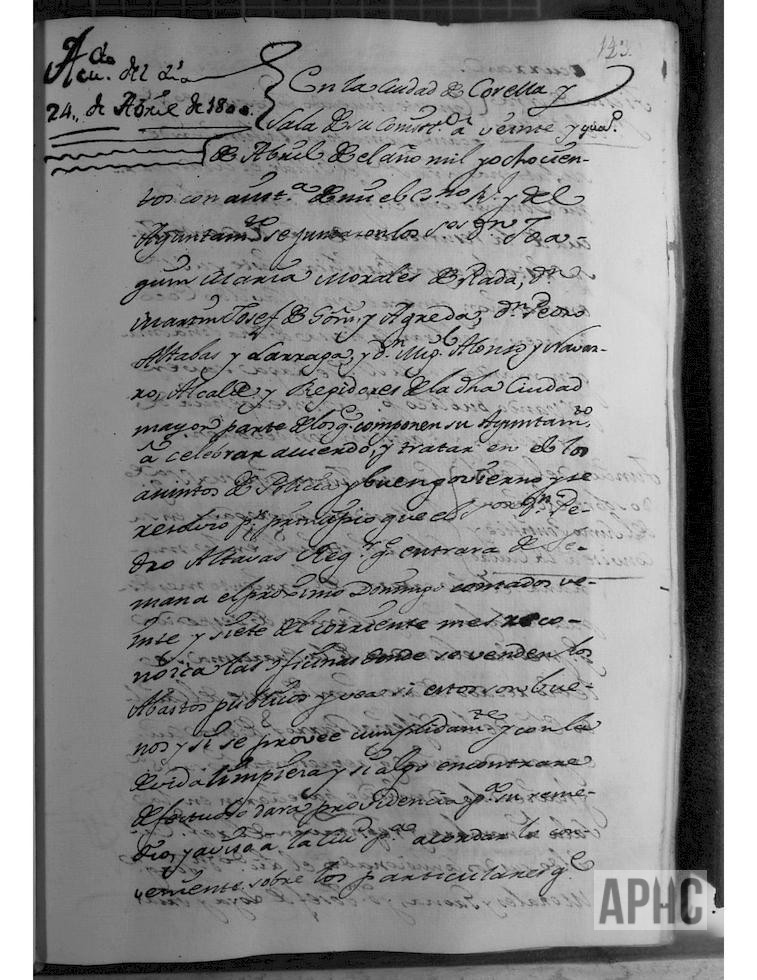 143
Acu.do del dia
24,, de Abril de 1800.
En la Ciudad de Corella, y
Sala de su Consist.a á veinte y qua.o
de Abril de el año mil y ochocien-
tos con asist.a de mi el Es.no R.l y del
Ayuntam.to se juntaron los S.res D.n Joa-
quin Maria Morales de Rada, D.n
Martin Josef de Goñi, y Agreda, D.n Pedro
Altabas y Larraga, y D.n Mig.l Alonso y Navar-
ro, Alcalde, y Regidores de la dha Ciudad
mayor parte de los q.e componen su Ayuntam.to
á celebrar acuerdo, y tratar en el los
asuntos de Policia y buen govierno y se
resolvio p.r principio que el S.or D.n Pe-
dro Altavas Reg.r q.e entrara de Se-
mana el proximo Domingo contados ve-
inte y siete del corriente mes reco-
nozca las oficinas donde se venden los
Abastos publicos y vea si estos son bue-
nos y si se provee cumplidam.te y con la
devida limpieza y si algo encontrare
defectuoso dará providencia p.a su reme-
dio, y aviso á la Ciu.d p.a acordar lo con-
veniente sobre los particulares q.e
APHC